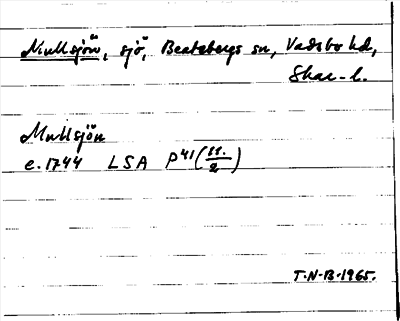 Mullsjön, sjö, Beatebergs sn, Vadsbo hd,
Skar-l.
Mullsjön
e. 1744 LSA P41 (11./2)
T.N-B-1965.